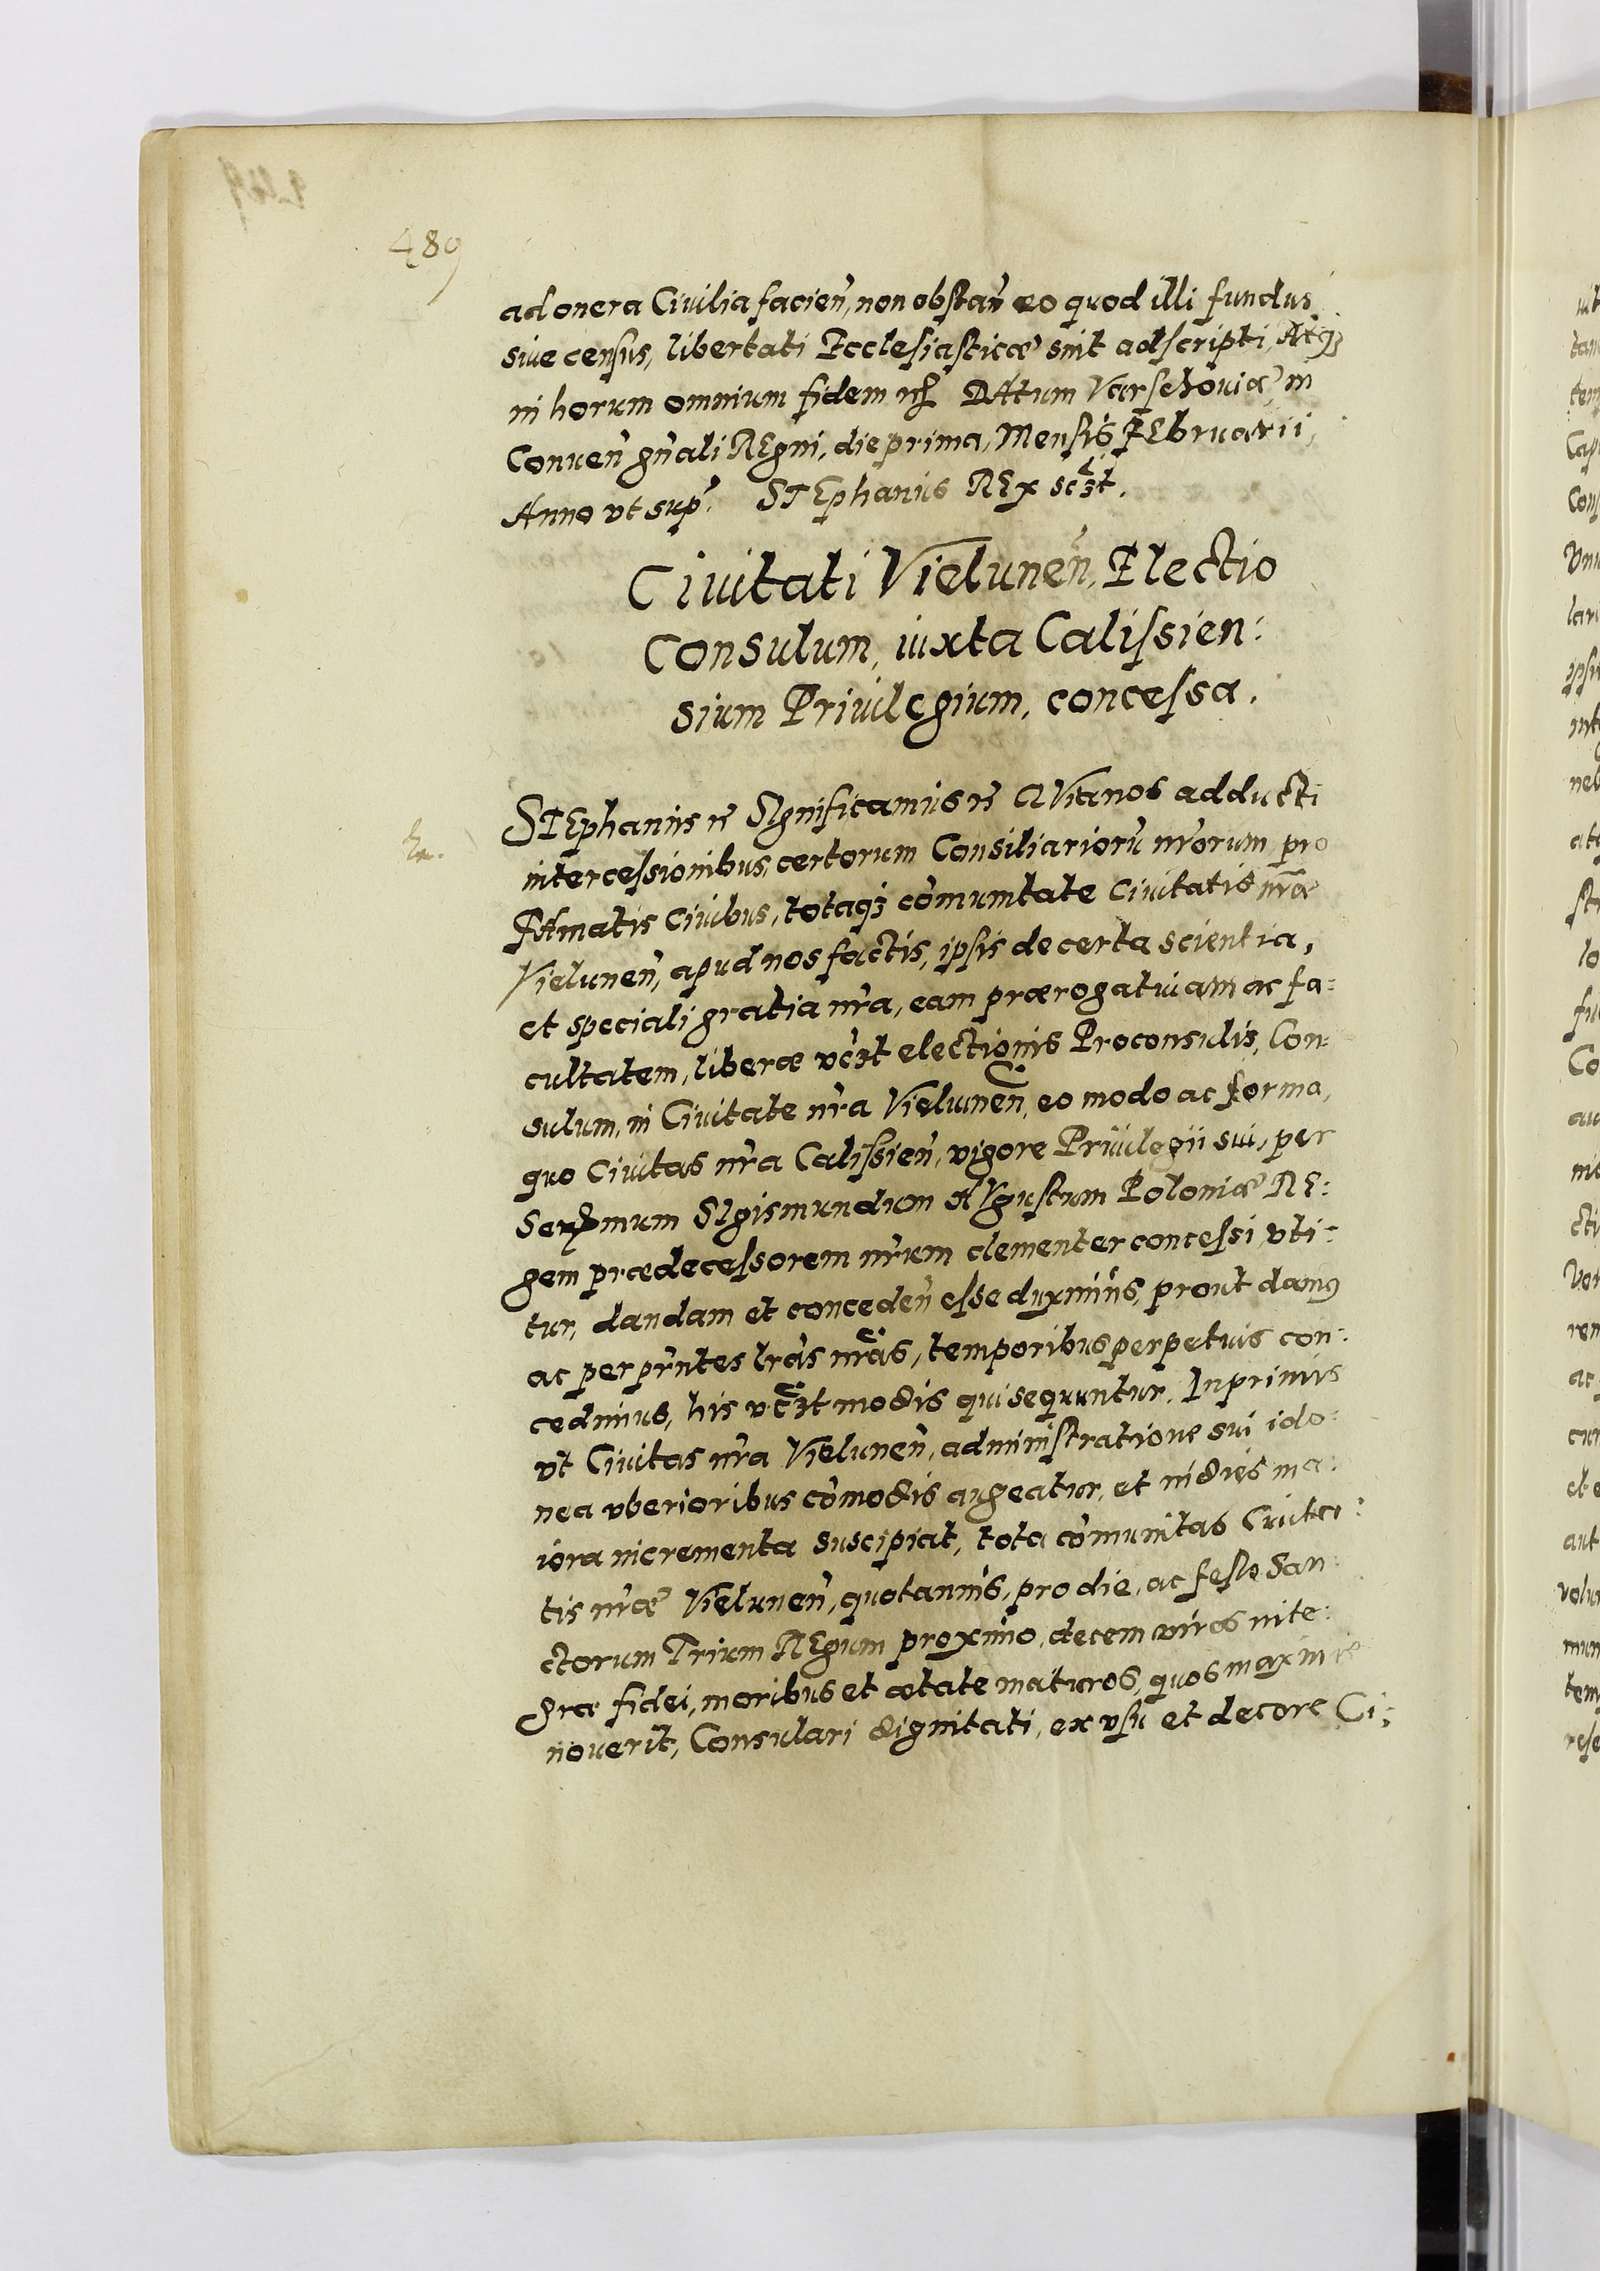 489
ad onera Ciuilia facien̄, non obstan̄ eo quod illi fundus
siue census, libertati Ecclesiasticæ sint adscripti, Atq3
in horum omnium fidem Datum Varschouiæ, in
Conuen̄ gn̄ali REgni, die prima, Mensis FEbruarii,
Anno vt sup̄. STEphanus REx sc3t.
Ciuitati Vielunen̄, Electio
Consulum, iuxta Calissien:
sium Priuilegium, concessa.
STEphanus Significamus QVia nos adducti
intercessionibus, certorum Consiliariorū nr̄orum, pro
FAmatis Ciuibus, totaq3 cōmunitate Ciuitatis nr̄æ
Vielunen̄, apud nos factis, ipsis de certa scientia,
et speciali gratia nr̄a, eam prærogatiuam ac fa:
cultatem, liberæ vc3t electionis Proconsulis, Con:
sulum, in Ciuitate nr̄a Vielunen̄, eo modo ac forma,
quo Ciuitas nr̄a Calissien̄, vigore Priuilegii sui, per
SIgismundum AVgustum Poloniæ RE:
gem prædecessorem nr̄um clementer concessi, vti:
tur, dandam et conceden̄ esse duximus, prout damus
ac per pn̄tes lr̄as nr̄as, temporibus perpetuis con:
cedimus, his vc3t modis qui sequuntur. Inprimis
vt Ciuitas nr̄a Vielunen̄, administratione sui ido:
nea vberioribus cōmodis augeatur, et indies ma:
iora incrementa suscipiat, tota cōmunitas Ciuita:
tis nr̄æ Vielunen̄, quotannis, pro die, ac festo San:
ctorum Trium REgum proximo, decem viros inte:
græ fidei, moribus et ætate maturos, quos maxime
nouerit, Consulari dignitati, ex vsu et decore Ci: